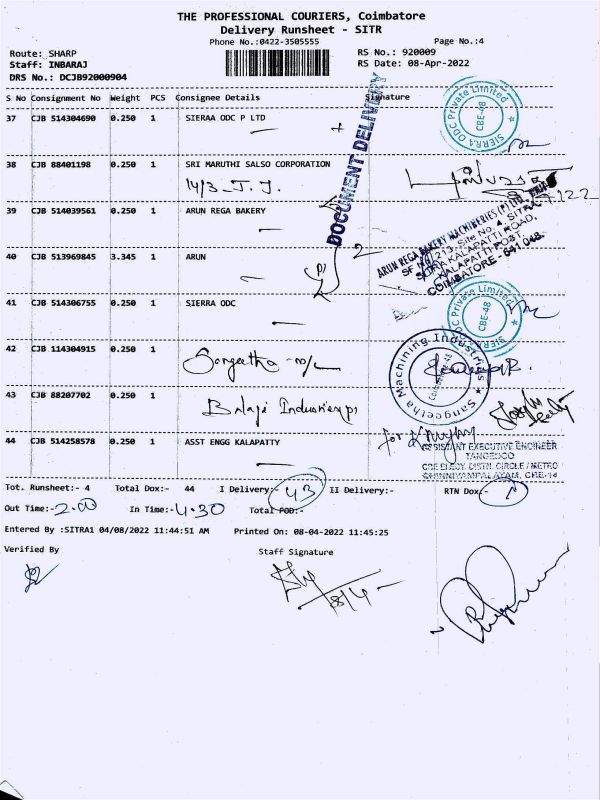 THE PROFESSIONAL COURIERS, Coimbatore
Delivery Runsheet - SITR
Phone No.:0422-3505555
Page No.:4
Route: SHARP
RS No.: 920009
Staff: INBARAJ
RS Date: 08-Apr-2022
DRS No.: DCJB92000904
S No Consignment No Weight PCS Consignee Details Signature
37 CJB 514304690 0.250 1 SIERAA ODC P LTD
SIERRA ODC Private Limited
CBE-48
DOCUMENT DELIVERY
38 CJB 88401198 0.250 1 SRI MARUTHI SALSO CORPORATION
14/3 - T. J.
39 CJB 514039561 0.250 1 ARUN REGA BAKERY
ARUN REGA BAKERY MACHINERIES (P) LTD.
SF No. 213, Site No. 4, SITRA,
SITRA KALAPATTI ROAD,
KALAPATTI POST,
COIMBATORE - 641 048.
40 CJB 513969845 3.345 1 ARUN
2
41 CJB 514306755 0.250 1 SIERRA ODC
SIERRA ODC Private Limited
CBE-48
42 CJB 114304915 0.250 1 Sangeetha m/c
Sangeetha Machining Industries
43 CJB 88207702 0.250 1 Balaji Industries
44 CJB 514258578 0.250 1 ASST ENGG KALAPATTY
for
ASSISTANT EXECUTIVE ENGINEER
TANGEDCO
CBE ELECY. DISTN. CIRCLE / METRO
CHINNIYAMPALAYAM, CBE-14
Tot. Runsheet:- 4 Total Dox:- 44 I Delivery:- 43 II Delivery:- RTN Dox:- 1
Out Time:- 2.00 In Time:- 4.30 Total POD:-
Entered By :SITRA1 04/08/2022 11:44:51 AM Printed On: 08-04-2022 11:45:25
Verified By Staff Signature
8/4